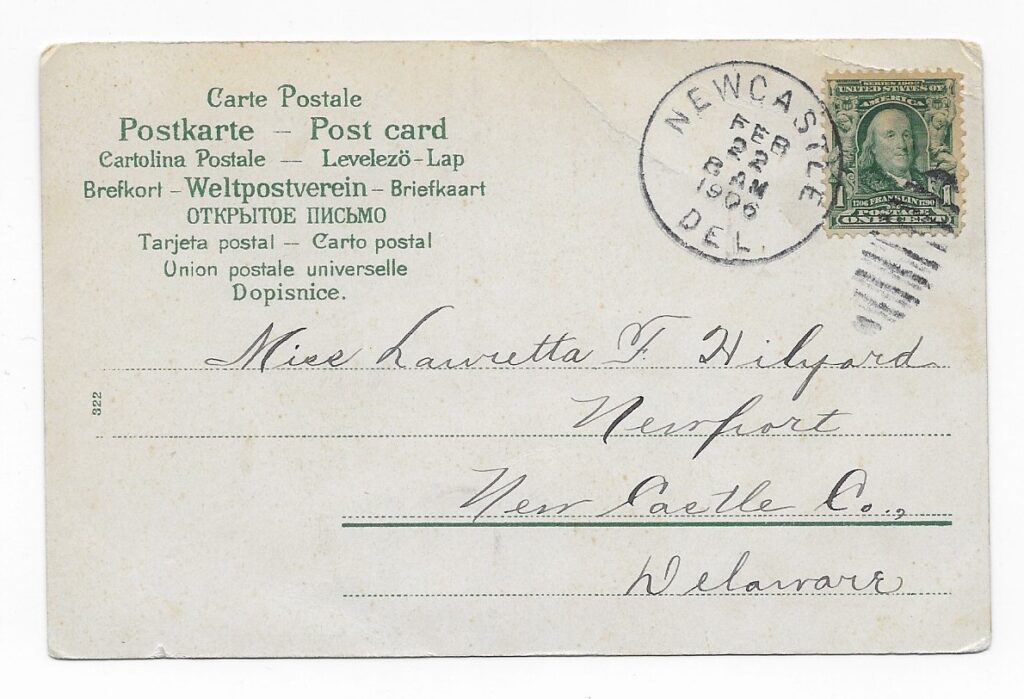 Carte Postale
Postkarte – Post card
Cartolina Postale — Levelezö-Lap
Brefkort – Weltpostverein – Briefkaart
ОТКРЫТОЕ ПИСЬМО
Tarjeta postal — Carto postal
Union postale universelle
Dopisnice.
NEWCASTLE
FEB
22
8 AM
1906
DEL.
SERIES 1902
UNITED STATES OF
AMERICA
1 1
1706 FRANKLIN 1790
POSTAGE
ONE CENT
Miss Lauretta F. Hilyard
322
Newport
New Castle Co.,
Delaware